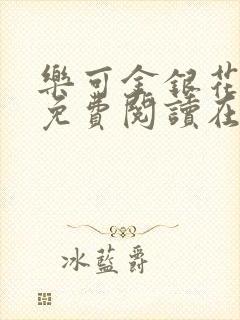 樂可金銀花
免費閱讀在
冰藍爵